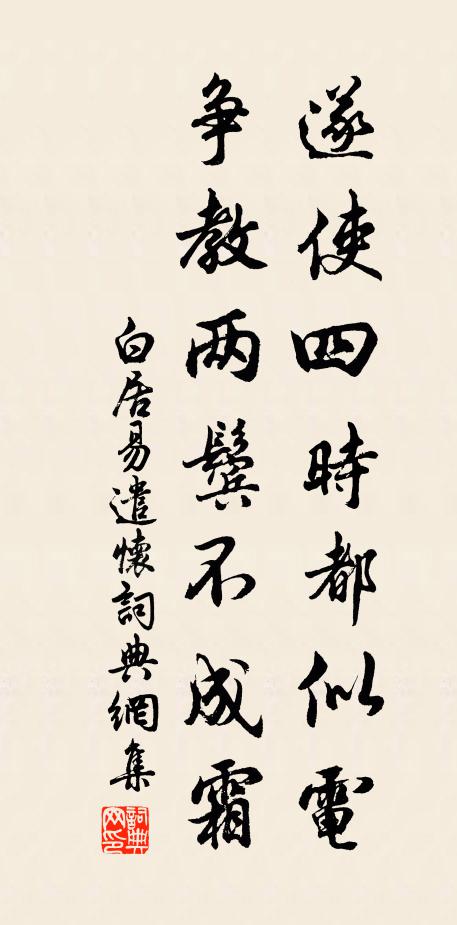 遂使四時都似電
争教两鬢不成霜
白居易遣懷詞典網集
詞典网印